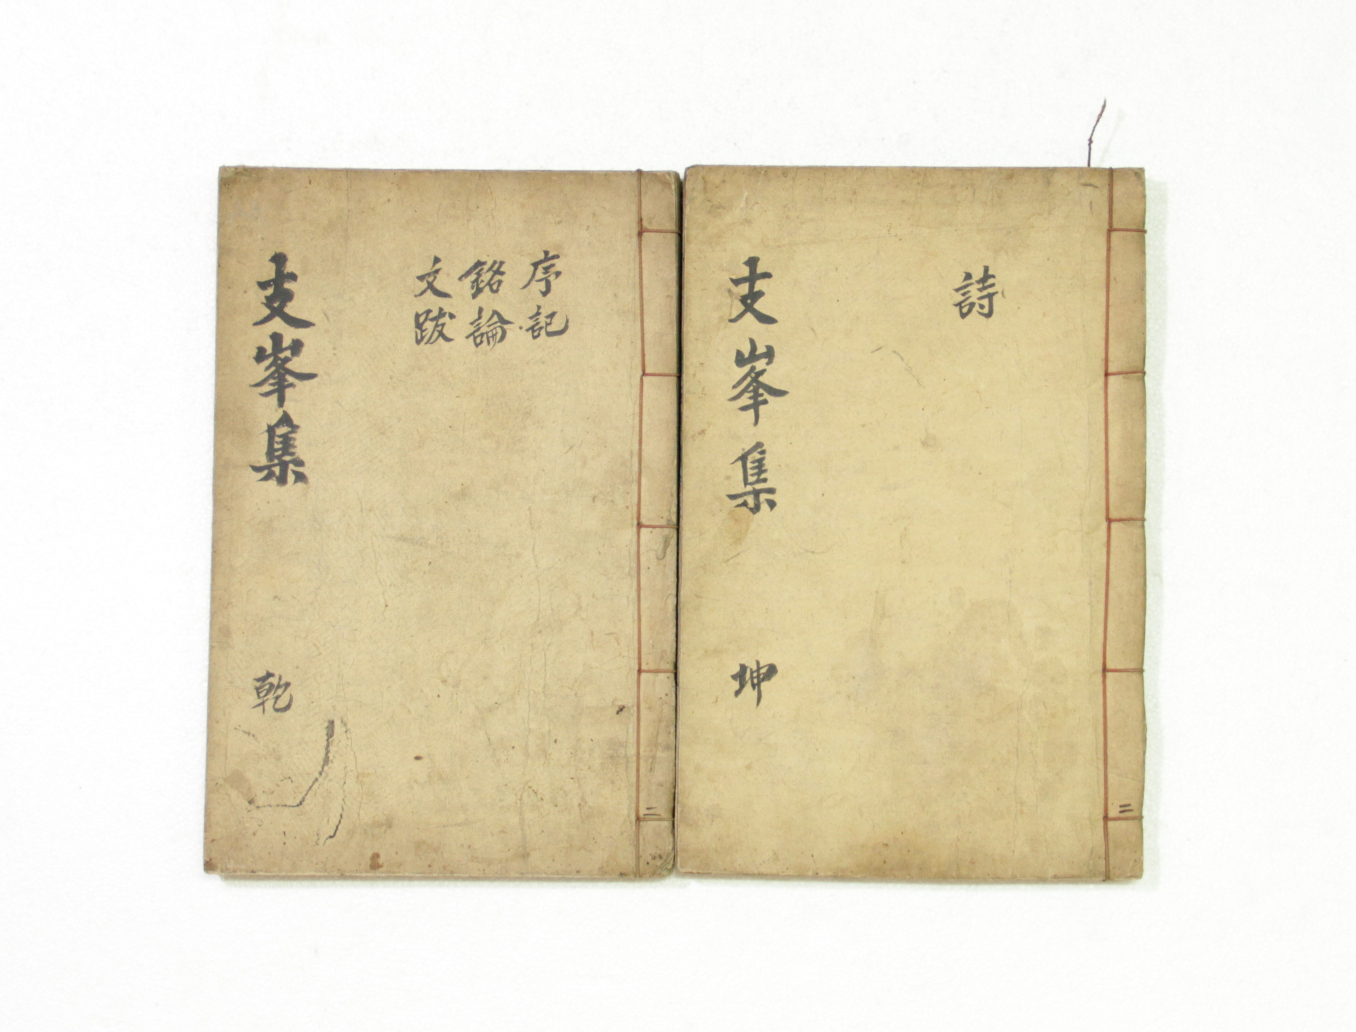 支峯集 乾
序記
銘論
文跋
二
支峯集 坤
詩
二